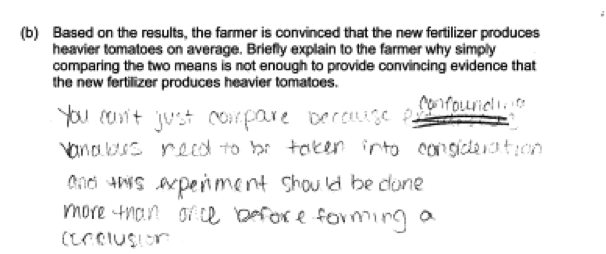 (b) Based on the results, the farmer is convinced that the new fertilizer produces
heavier tomatoes on average. Briefly explain to the farmer why simply
comparing the two means is not enough to provide convincing evidence that
the new fertilizer produces heavier tomatoes.
confounding
You can't just compare because
Variables need to be taken into consideration
and this experiment should be done
more than once before forming a
conclusion